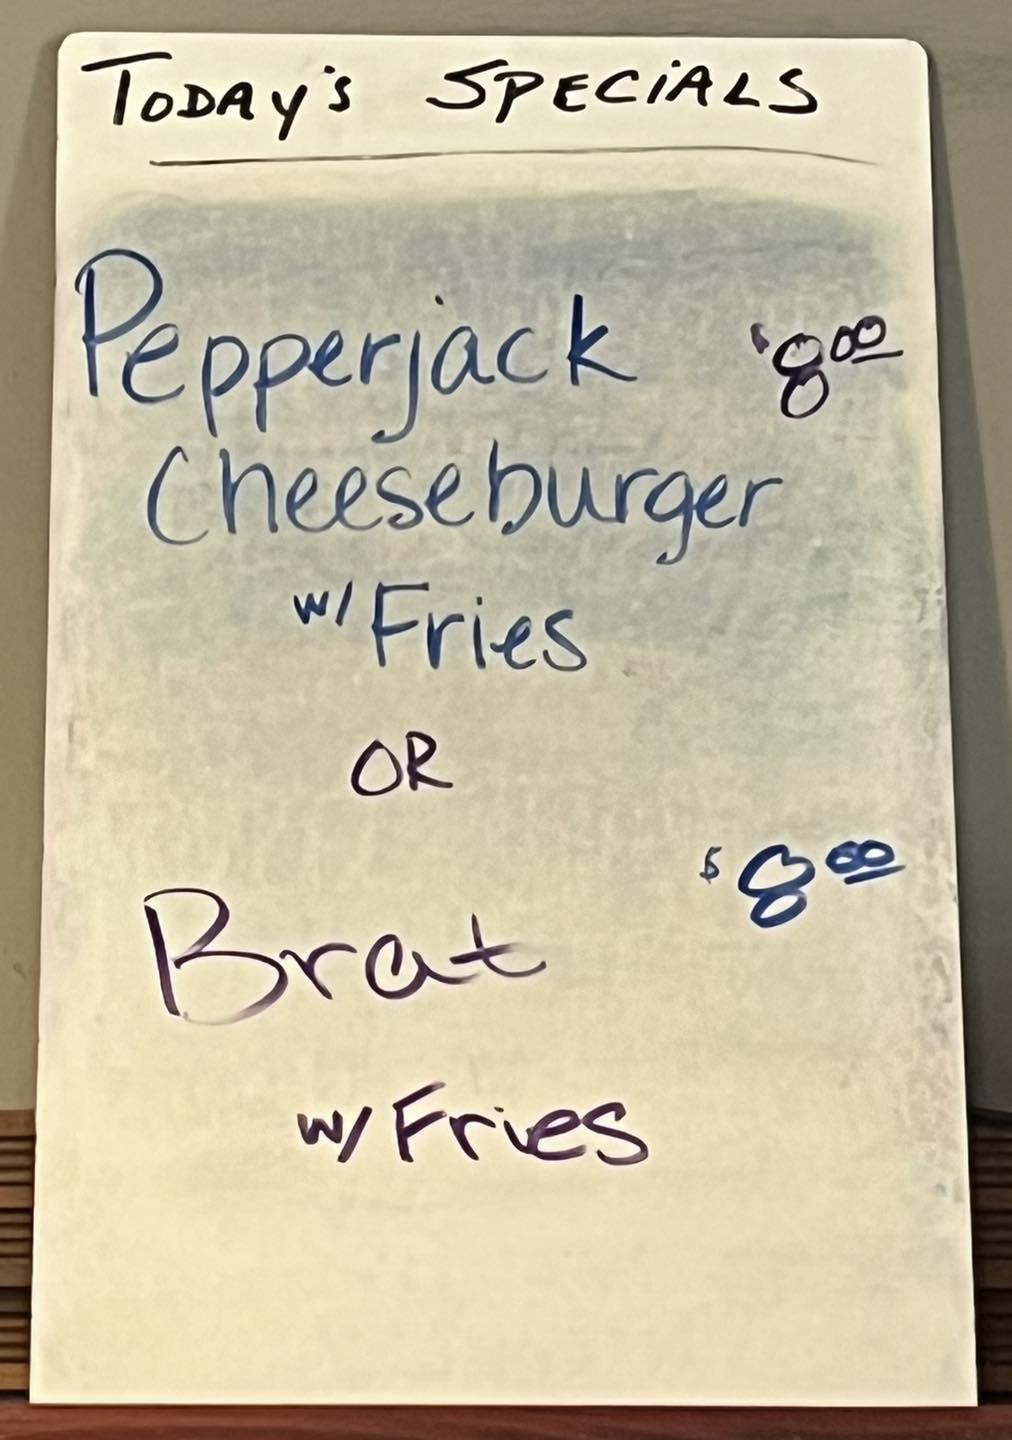 TODAY'S SPECIALS
Pepperjack $8.00
Cheeseburger
w/ Fries
OR
$8.00
Brat
w/ Fries